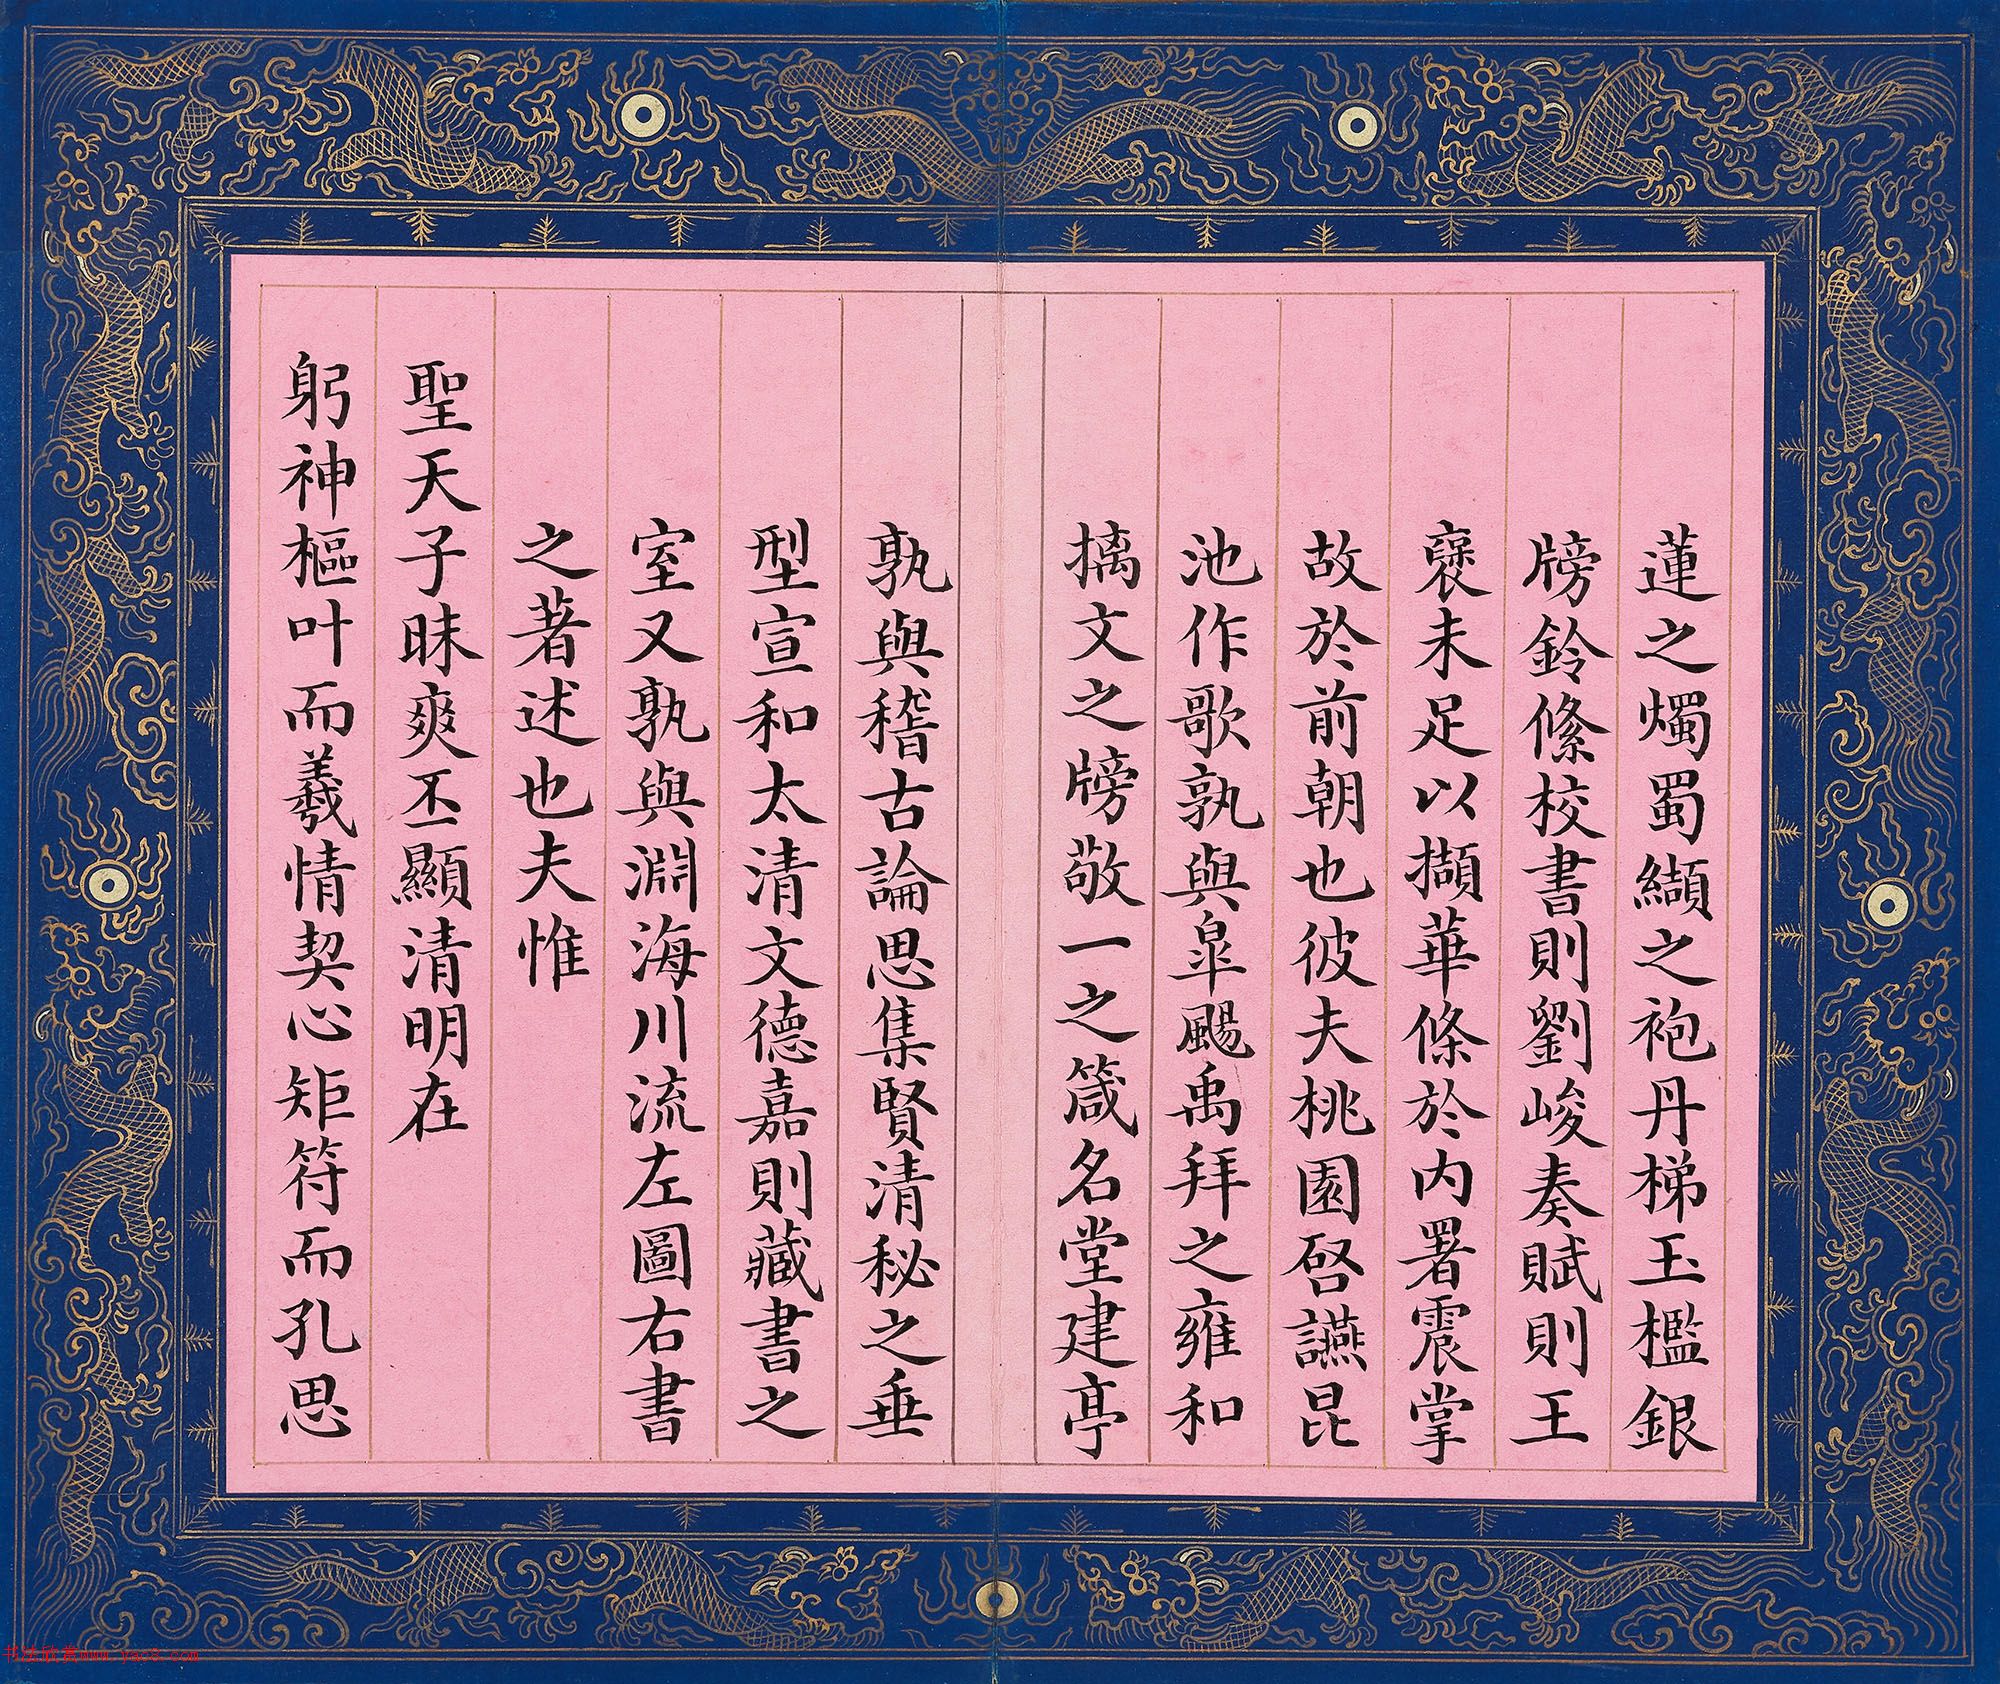 蓮之燭蜀纈之袍丹梯玉檻銀
牓鈴絛校書則劉峻奏賦則王
襃未足以擷華條於內署震掌
故於前朝也彼夫桃園啓讌昆
池作歌孰與皐颺禹拜之雍和
摛文之牓敬一之箴名堂建亭
孰與稽古論思集賢清秘之垂
型宣和太清文德嘉則藏書之
室又孰與淵海川流左圖右書
之著述也夫惟
聖天子昧爽丕顯清明在
躬神樞叶而羲情契心矩符而孔思
书法欣赏www.yac8.com